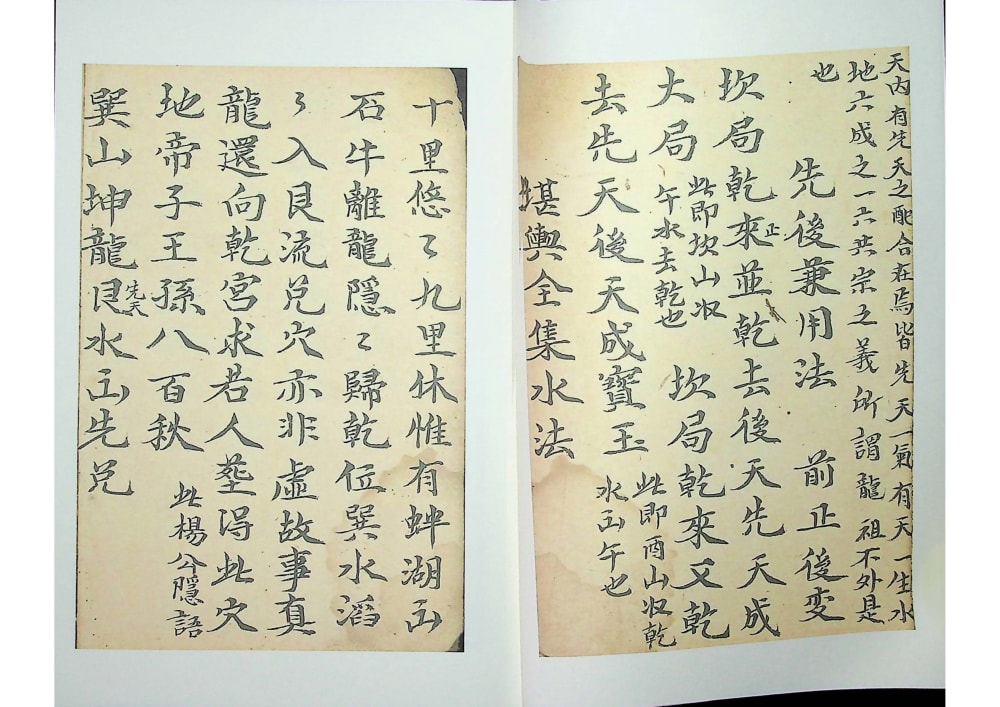 天內有先天之配合在焉皆先天一氣有天一生水
地六成之一六共宗之義所謂龍祖不外是
也
先後兼用法 前止後变
坎局乾來並乾去後天先天成
正
大局 此即坎山収午水去乾也 坎局乾來又乾
去先天後天成寶玉 此即酉山収乾水出午也
堪輿全集水法
十里悠〻九里休惟有蚌湖出
石牛離龍隱〻歸乾位巽水滔
〻入艮流兑穴亦非虛故事真
龍還向乾宮求若人塟得此穴
地帝子王孫八百秋 此楊公隱語
巽山坤龍艮水出先兑
先天